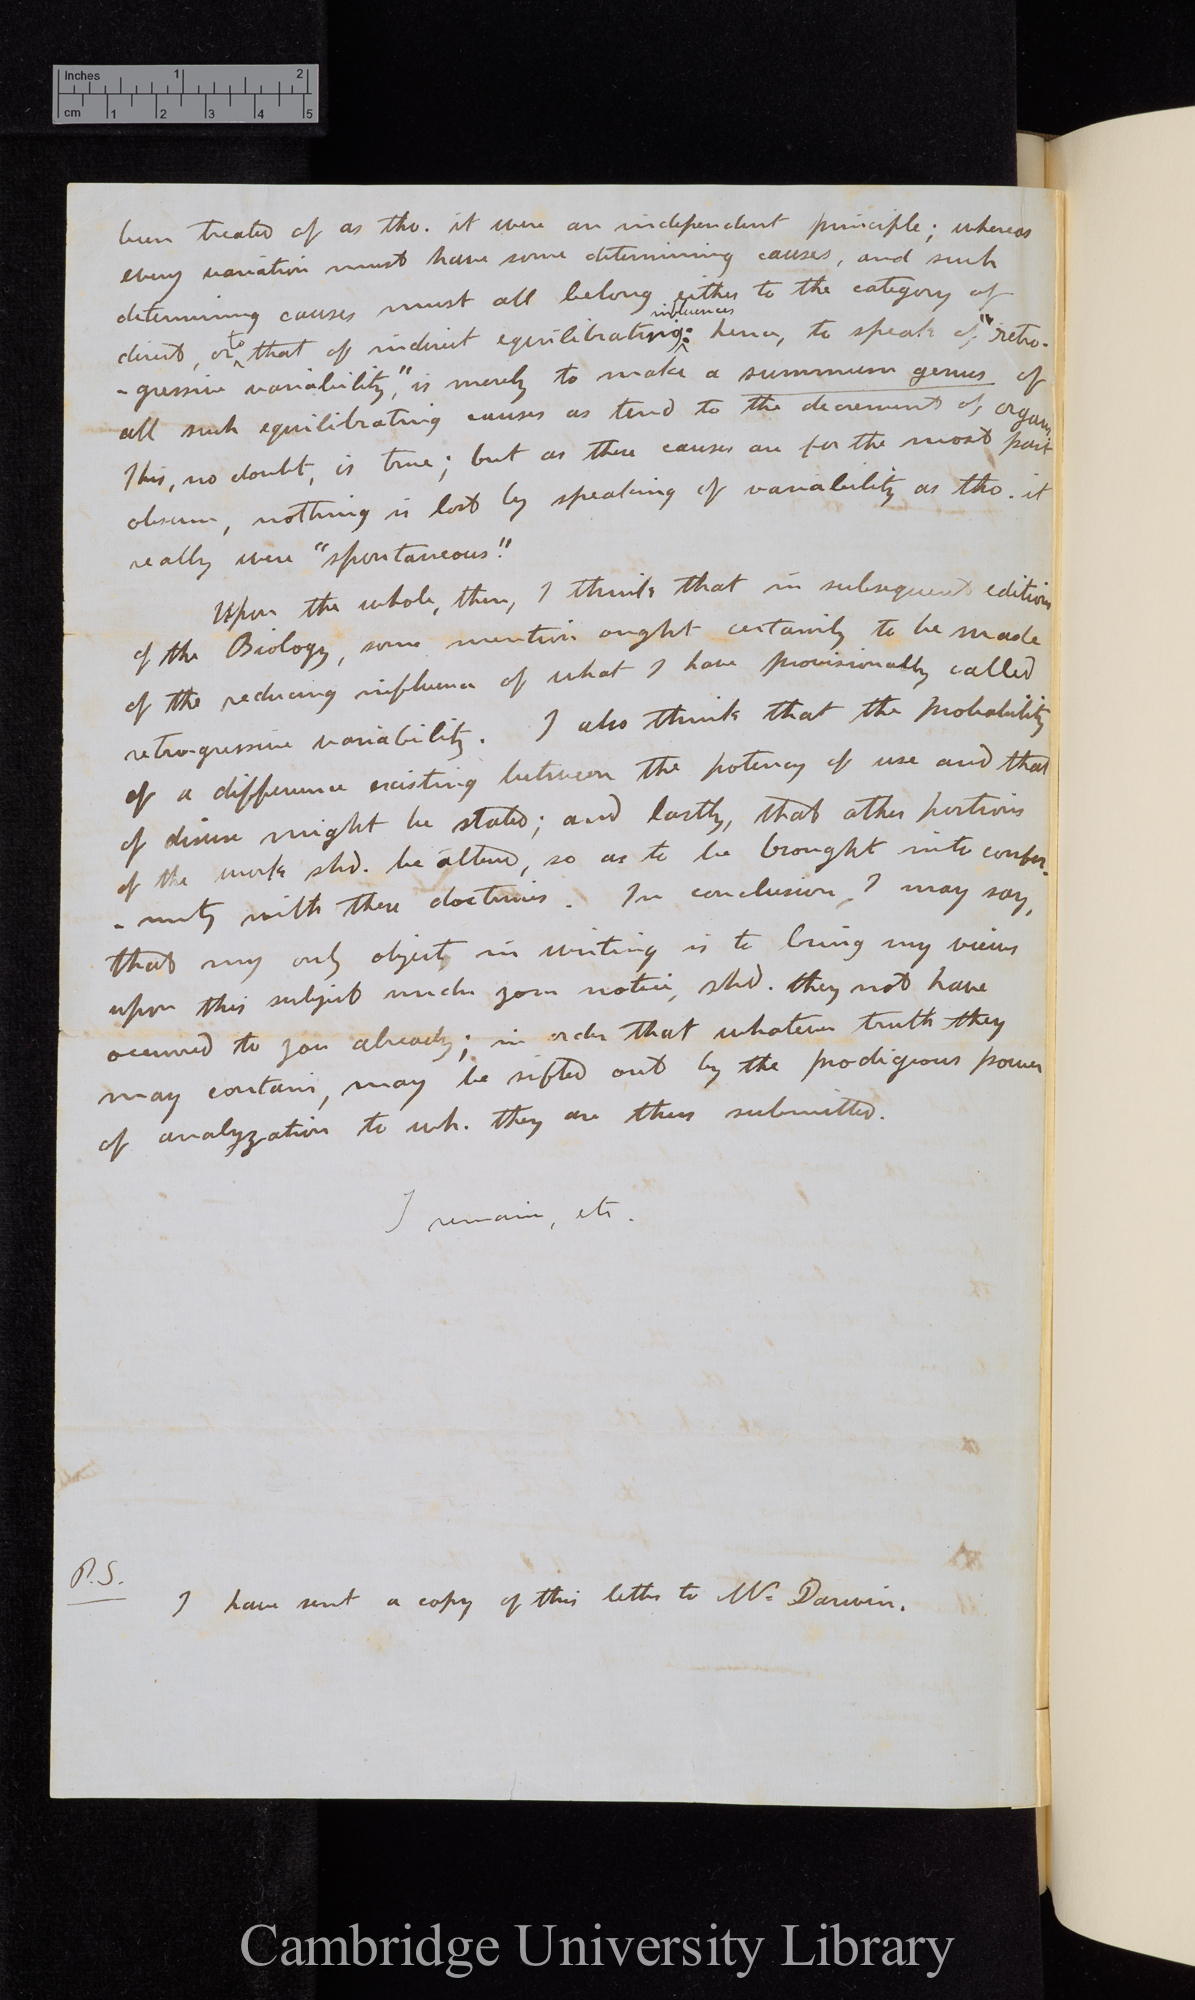 Inches 1 2
cm 1 2 3 4 5
been treated of as tho. it were an independent principle; whereas
every variation must have some determining causes, and such
determining causes must all belong either to the category of
direct, or to that of indirect equilibrating influences: hence, to speak of "retro-
-gressive variability," is merely to make a summum genus of
all such equilibrating causes as tend to the decrement of organs
This, no doubt, is true; but as these causes are for the most part
obscure, nothing is lost by speaking of variability as tho. it
really were "spontaneous".
Upon the whole, then, I think that in subsequent editions
of the Biology, some mention ought certainly to be made
of the reducing influence of what I have provisionally called
retrogressive variability. I also think that the probability
of a difference existing between the potency of use and that
of disuse might be stated; and lastly, that other portions
of the work shd. be altered, so as to be brought into confor-
-mity with these doctrines. In conclusion, I may say,
that my only object in writing is to bring my views
upon this subject under your notice, shd. they not have
occurred to you already; in order that whatever truth they
may contain, may be sifted out by the prodigious power
of analyzation to wh. they are thus submitted.
I remain, etc.
P.S.
I have sent a copy of this letter to Mr. Darwin.
Cambridge University Library